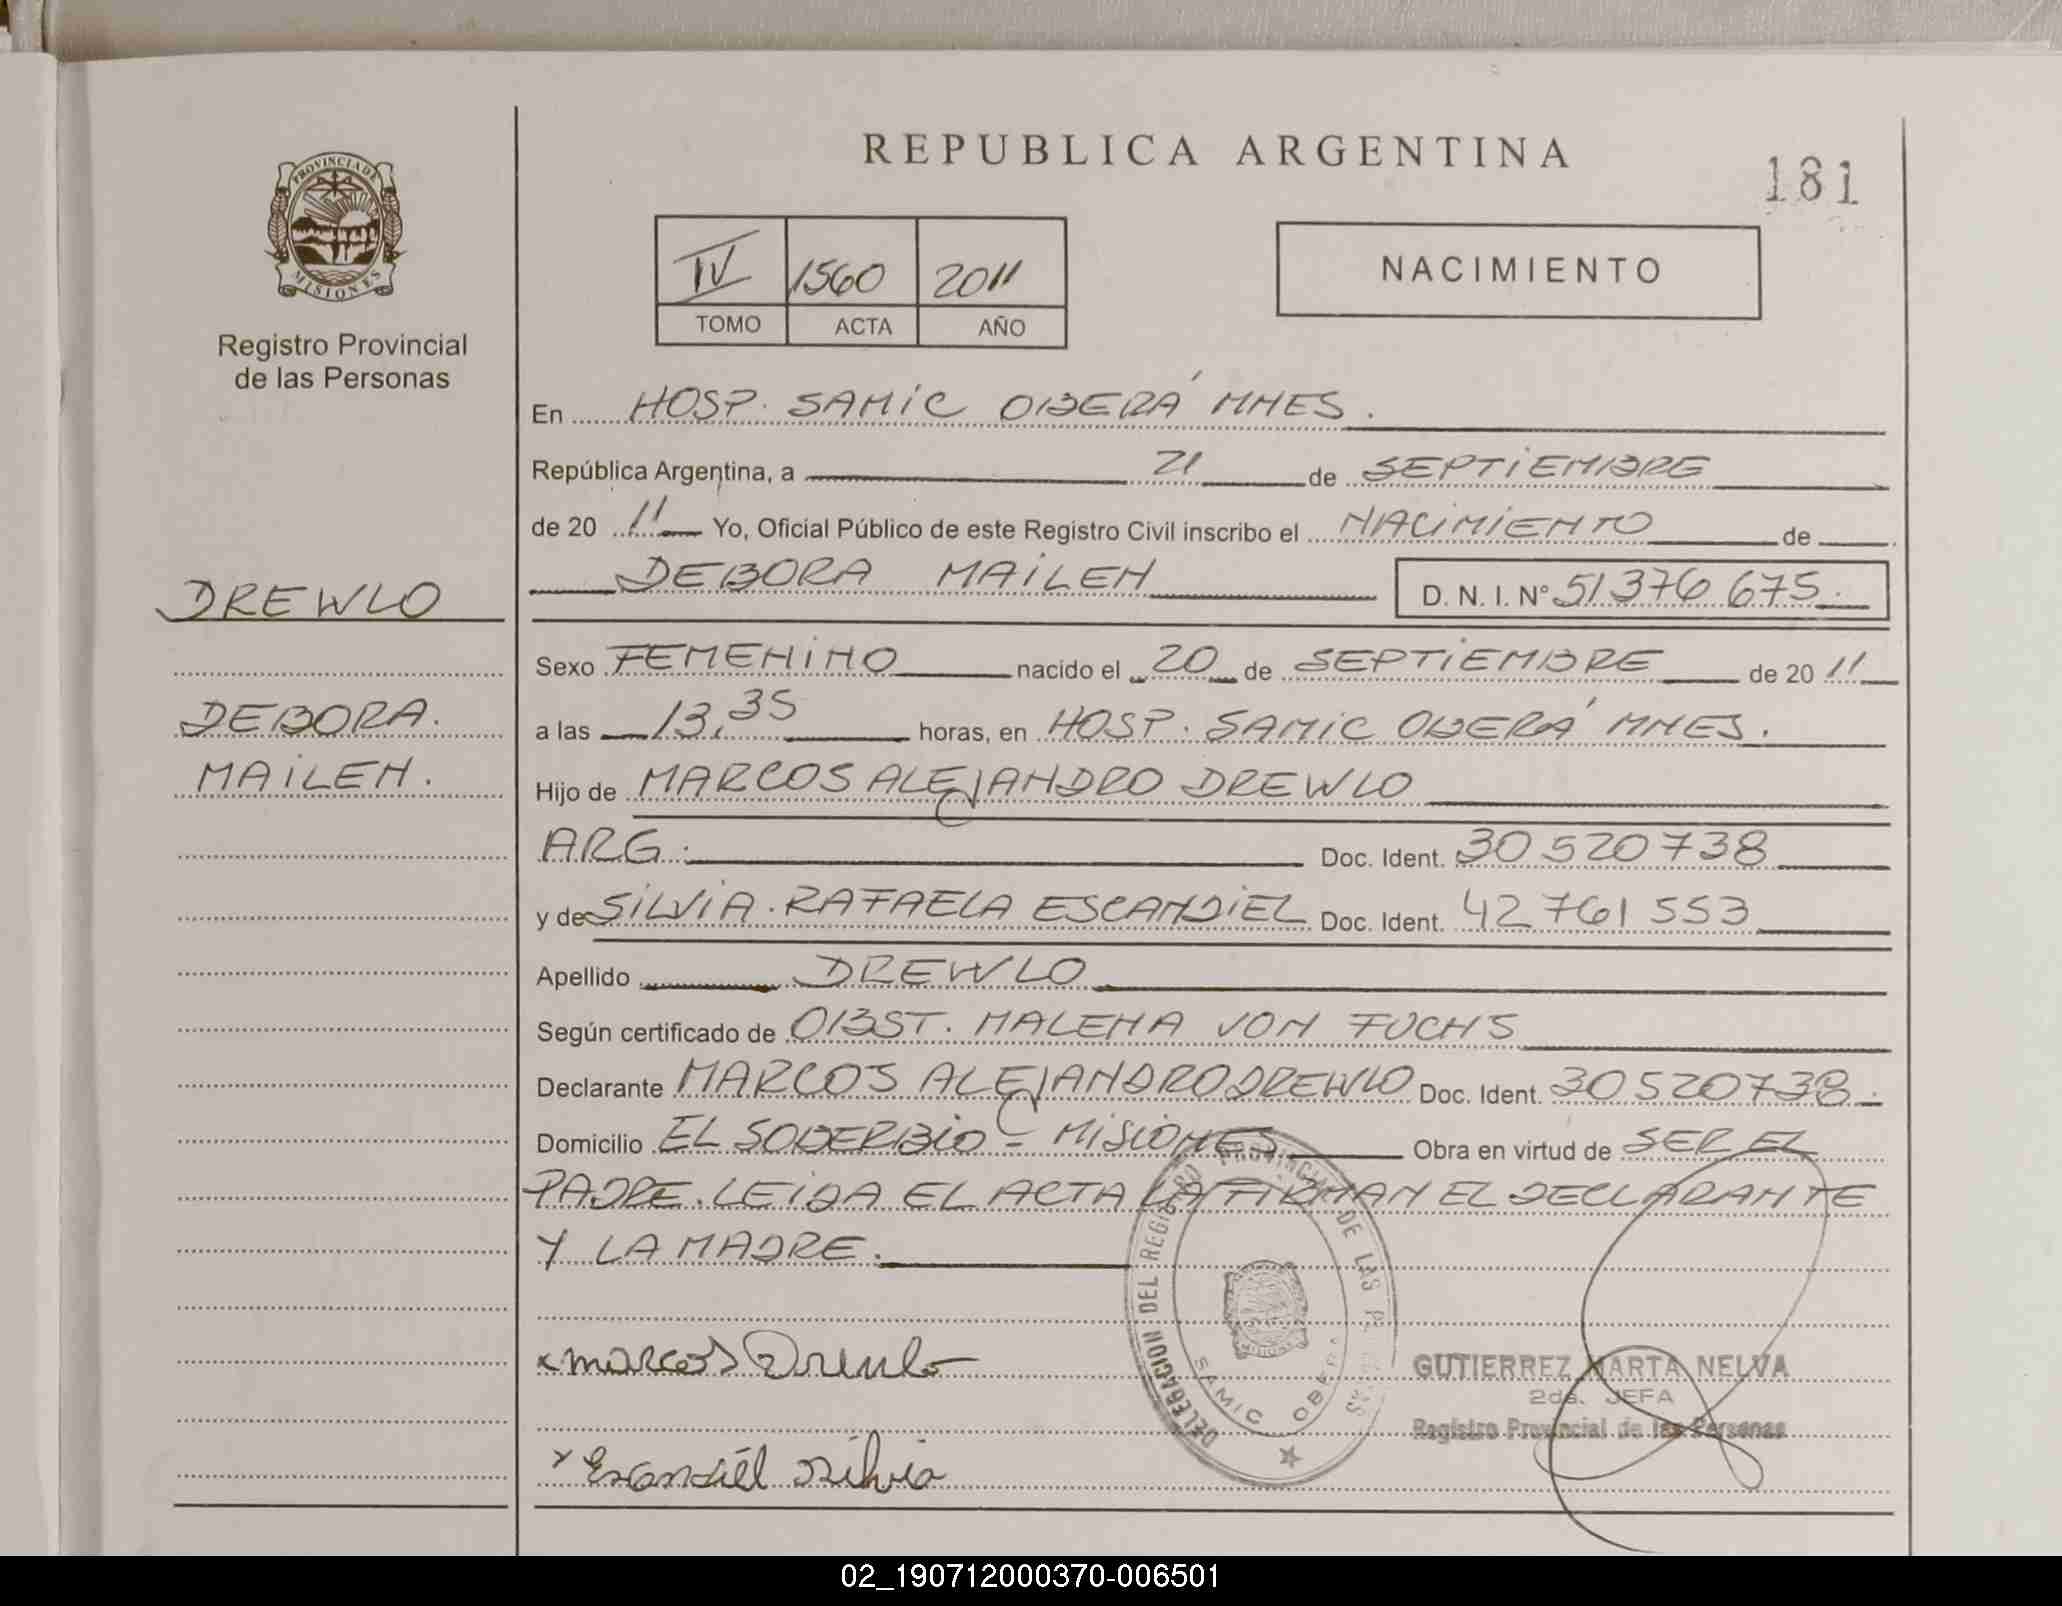 REPUBLICA ARGENTINA
181
PROVINCIA DE
MISIONES
Registro Provincial
de las Personas
IV 1560 2011
TOMO ACTA AÑO
NACIMIENTO
En HOSP. SAMIC OBERÁ MNES.
República Argentina, a 21 de SEPTIEMBRE
de 20 11 Yo, Oficial Público de este Registro Civil inscribo el NACIMIENTO de
DEBORA MAILEN D. N. I. Nº 51 376 675.
DREWLO
DEBORA.
MAILEN.
Sexo FEMENINO nacido el 20 de SEPTIEMBRE de 20 11
a las 13,35 horas, en HOSP. SAMIC OBERÁ MNES.
Hijo de MARCOS ALEJANDRO DREWLO
ARG. Doc. Ident. 30 520 738
y de SILVIA. RAFAELA ESCANDIEL Doc. Ident. 42 761 553
Apellido DREWLO
Según certificado de OBST. MALENA VON FUCHS
Declarante MARCOS ALEJANDRO DREWLO Doc. Ident. 30 520 738.
Domicilio EL SOBERBIO - MISIONES Obra en virtud de SER EL
PADRE. LEIDA EL ACTA LA FIRMAN EL DECLARANTE
Y LA MADRE.
DELEGACION DEL REGISTRO PROVINCIAL DE LAS
SAMIC OBERA
x marcos Drewlo
x Escandiél Silvia
GUTIERREZ MARTA NELVA
2da. JEFA
Registro Provincial de las Personas
02_190712000370-006501